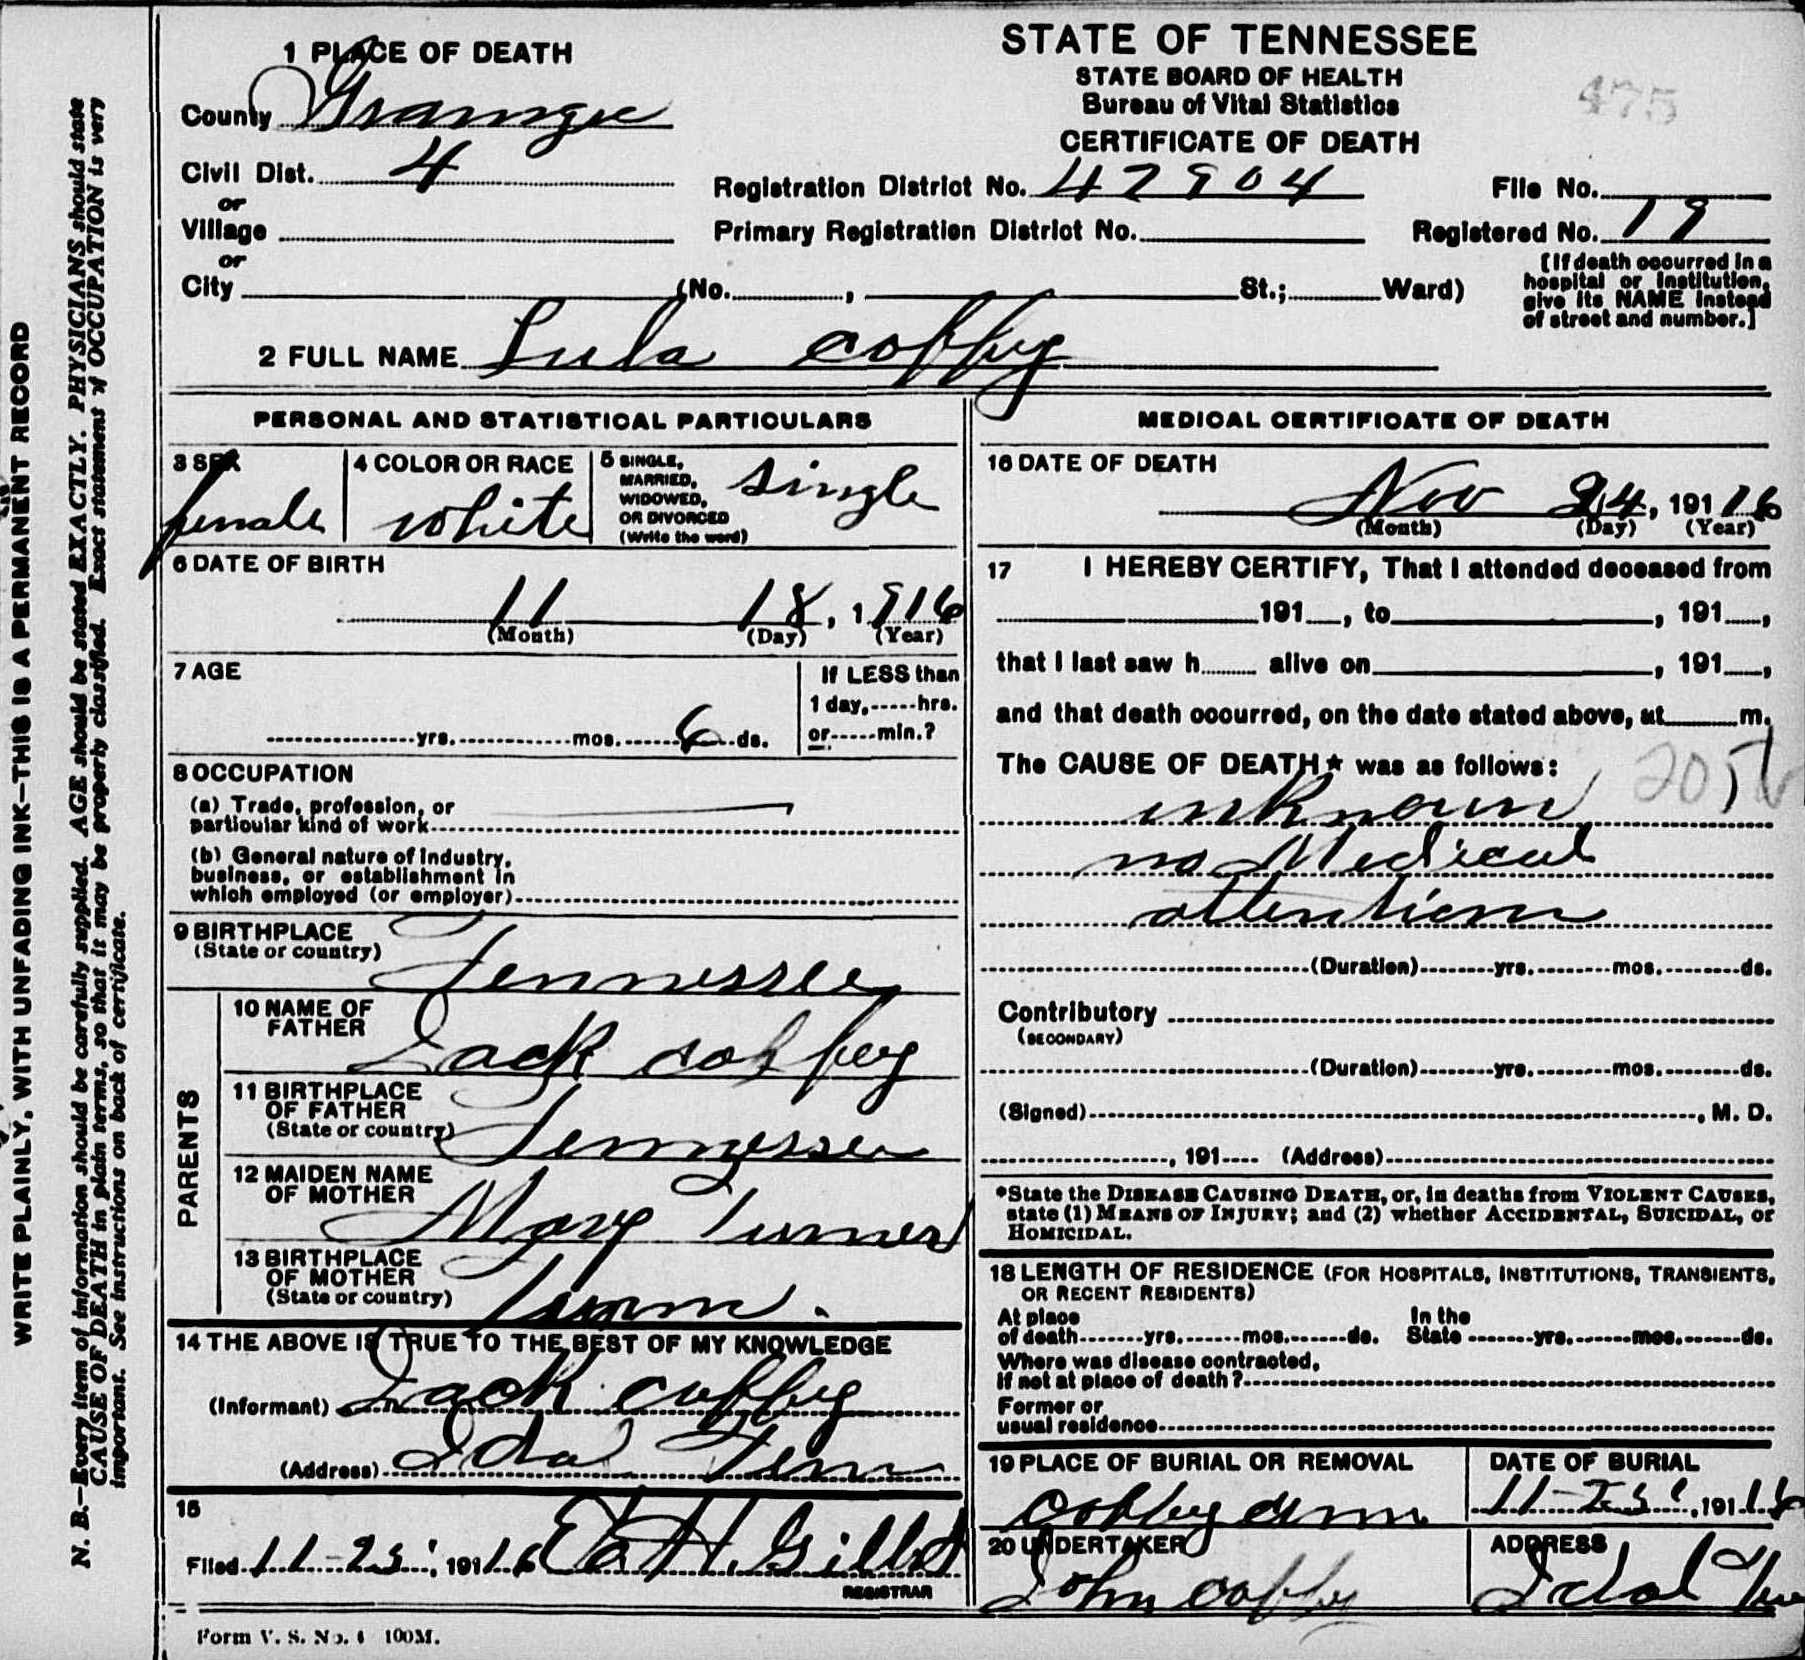 1 PLACE OF DEATH
County Grainger
Civil Dist. 4
or
Village
or
City (No. , St.; Ward)
STATE OF TENNESSEE
STATE BOARD OF HEALTH
Bureau of Vital Statistics
CERTIFICATE OF DEATH
475
Registration District No. 47904 File No.
Primary Registration District No. Registered No. 19
[If death occurred in a
hospital or institution,
give its NAME instead
of street and number.]
2 FULL NAME Lula coffey
PERSONAL AND STATISTICAL PARTICULARS
3 SEX female
4 COLOR OR RACE white
5 SINGLE,
MARRIED,
WIDOWED,
OR DIVORCED
(Write the word)
single
6 DATE OF BIRTH
11 18, 1916
(Month) (Day) (Year)
7 AGE
yrs. mos. 6 ds.
If LESS than
1 day, hrs.
or min.?
8 OCCUPATION
(a) Trade, profession, or
particular kind of work
(b) General nature of industry,
business, or establishment in
which employed (or employer)
9 BIRTHPLACE
(State or country) Tennessee
PARENTS
10 NAME OF
FATHER Jack coffey
11 BIRTHPLACE
OF FATHER
(State or country) Tennessee
12 MAIDEN NAME
OF MOTHER Mary Turner
13 BIRTHPLACE
OF MOTHER
(State or country) Tenn.
14 THE ABOVE IS TRUE TO THE BEST OF MY KNOWLEDGE
(Informant) Jack coffey
(Address) Idol Tenn
15
Filed 11-25, 1916
REGISTRAR
Form V. S. No. 4 100M.
MEDICAL CERTIFICATE OF DEATH
16 DATE OF DEATH
Nov 24, 191 16
(Month) (Day) (Year)
17 I HEREBY CERTIFY, That I attended deceased from
191 , to , 191 ,
that I last saw h alive on , 191 ,
and that death occurred, on the date stated above, at m.
The CAUSE OF DEATH* was as follows:
unknown
no Medical
attention
(Duration) yrs. mos. ds.
Contributory
(SECONDARY)
(Duration) yrs. mos. ds.
(Signed) , M. D.
, 191 (Address)
*State the DISEASE CAUSING DEATH, or, in deaths from VIOLENT CAUSES,
state (1) MEANS OF INJURY; and (2) whether ACCIDENTAL, SUICIDAL, or
HOMICIDAL.
18 LENGTH OF RESIDENCE (FOR HOSPITALS, INSTITUTIONS, TRANSIENTS,
OR RECENT RESIDENTS)
At place In the
of death yrs. mos. ds. State yrs. mos. ds.
Where was disease contracted,
if not at place of death?
Former or
usual residence
19 PLACE OF BURIAL OR REMOVAL
coffey cem
DATE OF BURIAL
11-25, 191 16
20 UNDERTAKER
John coffey
ADDRESS
Idol Tenn
WRITE PLAINLY, WITH UNFADING INK—THIS IS A PERMANENT RECORD
N. B.—Every item of information should be carefully supplied. AGE should be stated EXACTLY. PHYSICIANS should state
CAUSE OF DEATH in plain terms, so that it may be properly classified. Exact statement of OCCUPATION is very
important. See instructions on back of certificate.